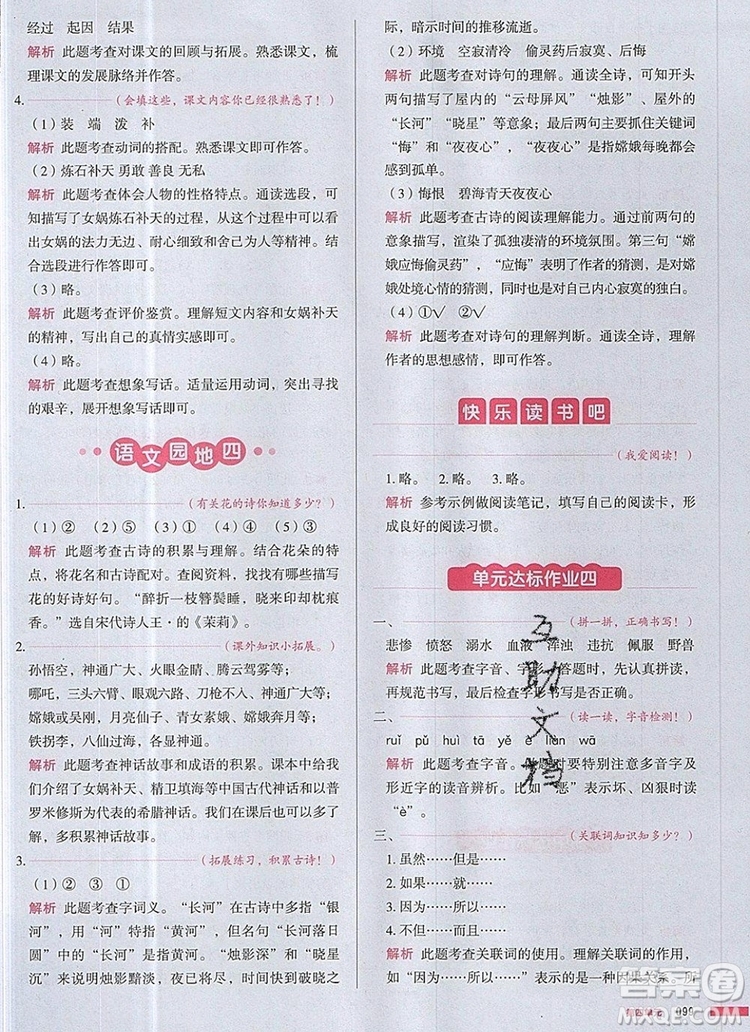 经过　起因　结果
解析　此题考查对课文的回顾与拓展。熟悉课文，梳
理课文的发展脉络并作答。
4.（会填这些，课文内容你已经很熟悉了！）
（1）装　端　泼　补
解析　此题考查动词的搭配。熟悉课文即可作答。
（2）炼石补天　勇敢　善良　无私
解析　此题考查体会人物的性格特点。选段通过对动
词描写了女娲炼石补天的过程，从中可以体会、可以
看出女娲的法力无边、耐心细致和有责任感等，结
合选段进行作答即可。
（3）略。
解析　此题考查评价鉴赏。理解短文内容和女娲补天
的精神，写出自己的真情实感即可。
（4）略。
解析　此题考查想象写话。适量运用动词，体现寻找
的艰辛，展开想象写话即可。
语文园地四
1.（有关花的诗你知道多少？）
（1）①　②　（2）⑤　③　①　④　②
解析　此题考查古诗的积累与理解。结合花朵的特
点，和古诗配对。查阅资料，找找我们学过的描写
花的好诗好句。“醉折一枝簪髻睡，觉来随印枕痕
香。”选自宋代诗人王·的《茉莉》。
2.（课外知识小拓展。）
孙悟空，神通广大、火眼金睛、腾云驾雾等；
哪吒，三头六臂、眼观六路、刀枪不入、大闹天宫等；
嫦娥或者月兔，月宫、青女素娥、嫦娥奔月等；
铁拐李，八仙过海、各显神通等。
解析　此题考查神话故事和成语的积累。课本中给
我们介绍了女娲补天、盘古开天地等中国古代神话和以普
罗米修斯为代表的希腊神话。我们在课后也可以多
积累其他的神话故事。
3.（拓展练习，积累古诗！）
（1）②　③　①
解析　此题考查字词义。“长河”在古诗句中指“银
河”，用“河”特指“黄河”。“长河落日
圆”中“长河”是指黄河。“烛影深”和“晓星
沉”来说明烛影黯淡，这是一种持续的时间到破晓之
际，暗示时间的推移流逝。
（2）环境　空寂清冷　偷灵药后寂寞、后悔
解析　此题考查对诗句的理解。通读全诗，感受开头
两句描写了屋内的“云母屏风”“烛影”、屋外的
“长河”“晓星”等意象；最后两句，抓住关键词
“悔”和“夜夜心”，“夜夜心”是指嫦娥每晚都会
感到孤单。
（3）悔恨　碧海青天夜夜心
解析　此题考查古诗的阅读理解能力。通过前两句的
意象描写，渲染了孤独凄清的环境氛围。第三句“嫦
娥应悔偷灵药”，“应悔”表明了作者的猜测，是对嫦
娥处境心情的猜测，体现出自己内心寂寞的思想。
（4）①√　②√
解析　此题考查对诗句的理解判断。通读全诗，理解
作者的思想感情，即可作答。
快乐读书吧
（我爱阅读！）
1. 略。　2. 略。　3. 略。
解析　参考示例做阅读笔记，填写自己的阅读卡，形
成良好的阅读习惯。
单元达标作业四
一、（拼一拼，正确书写！）
悲惨　愤怒　溺水　血液　浑浊　违抗　佩服　野兽
解析　此题考查字音、字形。在做题时先正确拼读，
再规范书写，最后检查字形是否正确。
二、（读一读，字音检测！）
ruǐ　pǔ　huì　tā　yě　è　liàn　wā
解析　此题考查字音。在做题时特别注意多音字及
形近字的读音辨析。比如，“恶”表示凶恶、凶狠时读
“è”。
三、（关联词知识知多少？）
1. 虽然……但是……
2. 如果……就……
3. 因为……所以……
4. 不但……而且……
解析　此题考查关联词的使用。理解关联词的作用，
如“因为……所以……”表示的是一种因果关系，所
互助文档
答案圈
099